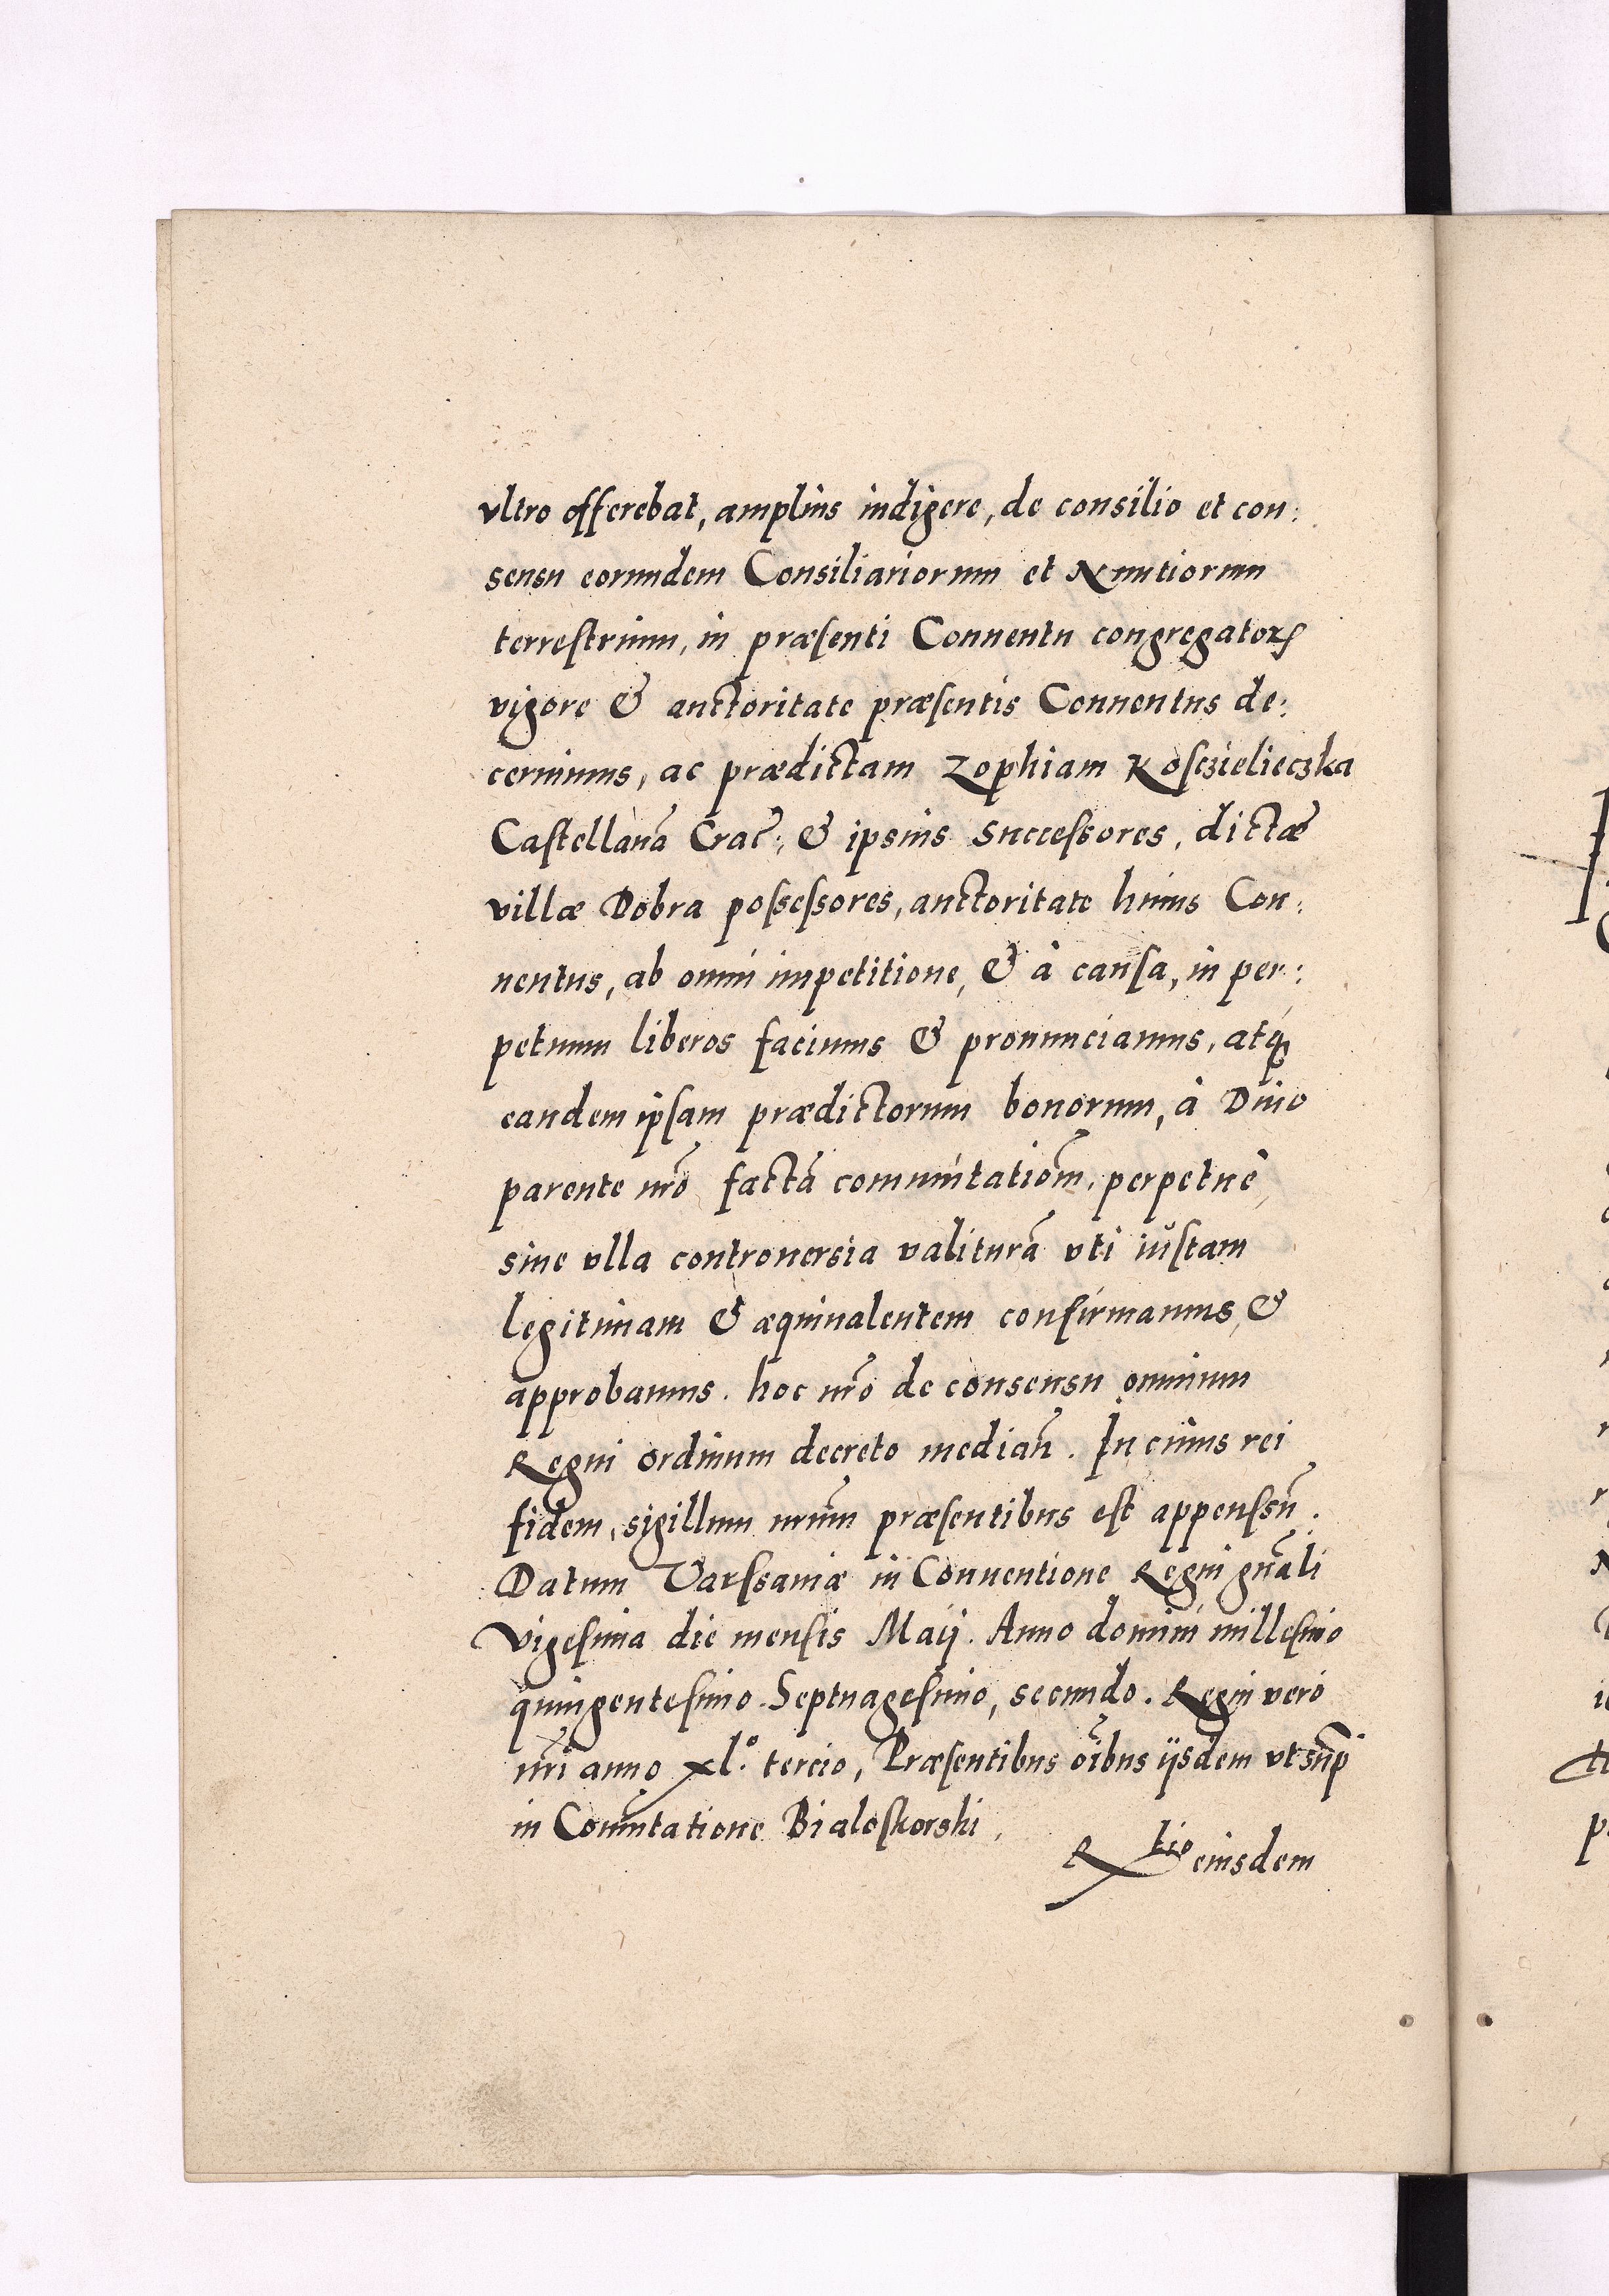 vltro offerebat, amplius indigere, de consilio et con:
sensu eorundem Consiliariorum et Nuntiorum
terrestrium, in præsenti Conuentu congregatorꝝ
vigore & auctoritate præsentis Conuentus de:
cernimus, ac prædictam Zophiam Kosczielieczka
Castellanã Crac̃: & ipsius Successores, dictæ
villæ Dobra possessores, auctoritate huius Con:
uentus, ab omni impetitione, & à causa, in per:
petuum liberos facimus & pronunciamus, atq́
eandem ipsam prædictorum bonorum, à Diuo
parente nr̃o factã commutatiom̃, perpetuè,
sine ulla controuersia valiturã uti iŭstam
legitimam & æquiualentem confirmamus, &
approbamus. hoc nr̃o de consensu omnium
Regni ordinum decreto median̄. In cuius rei
fidem, sigillum nrũm præsentibus est appenssũ.
Datum Varssauiæ in Conuentione Regni gnãli
Vigesima die mensis Maij. Anno domini millesimo
quingentesimo Septuagesimo, secundo. Regni vero
nr̃i anno xl.º tercio, Præsentibus oĩbus ijsdem ut sup̃
in Com̃utatione Bialoskorski,
R tio eiusdem